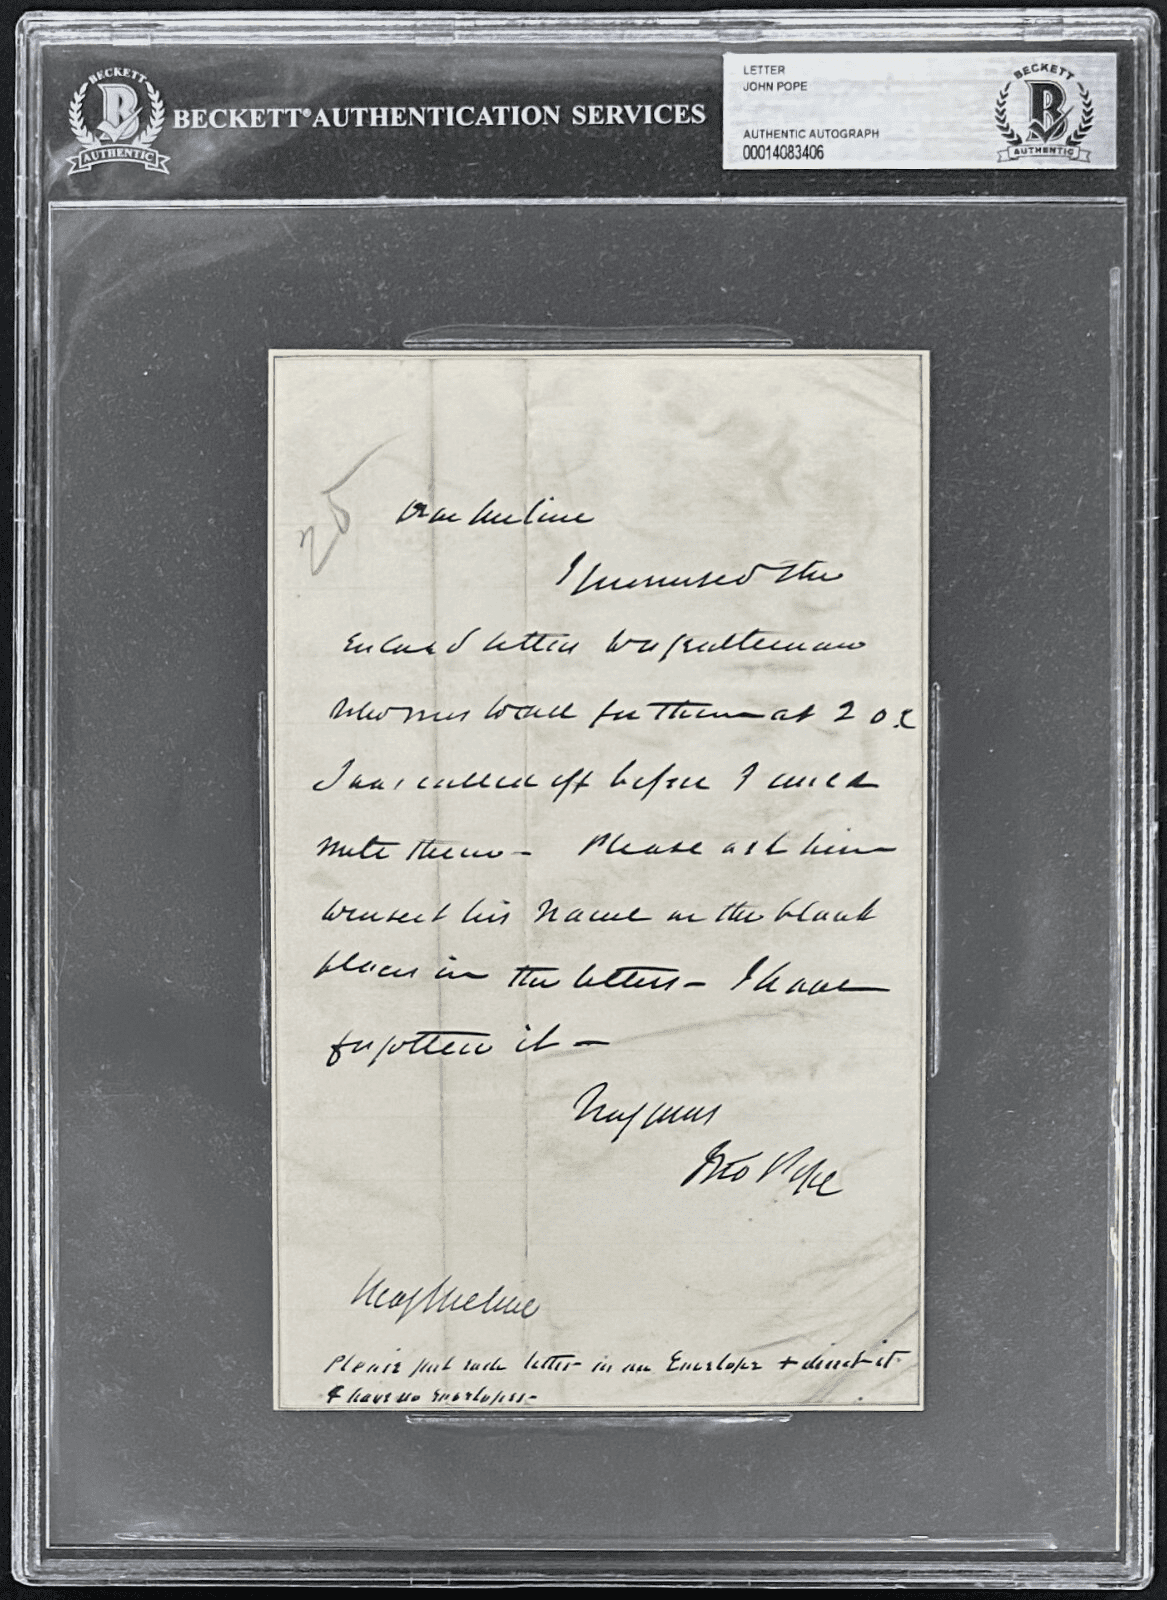 BECKETT
B
AUTHENTIC
BECKETT® AUTHENTICATION SERVICES
LETTER
JOHN POPE
AUTHENTIC AUTOGRAPH
00014083406
BECKETT
B
AUTHENTIC
20
Dear Meline
I promised the
Enclosed letters to a gentleman
who was to call for them at 2 o.c
I was called off before I could
write them – Please ask him
to insert his Name in the blank
places in the letters – I have
forgotten it –
Truly yours
Jno Pope
Meline
Please put each letter in an Envelope & direct it
I have no envelopes –